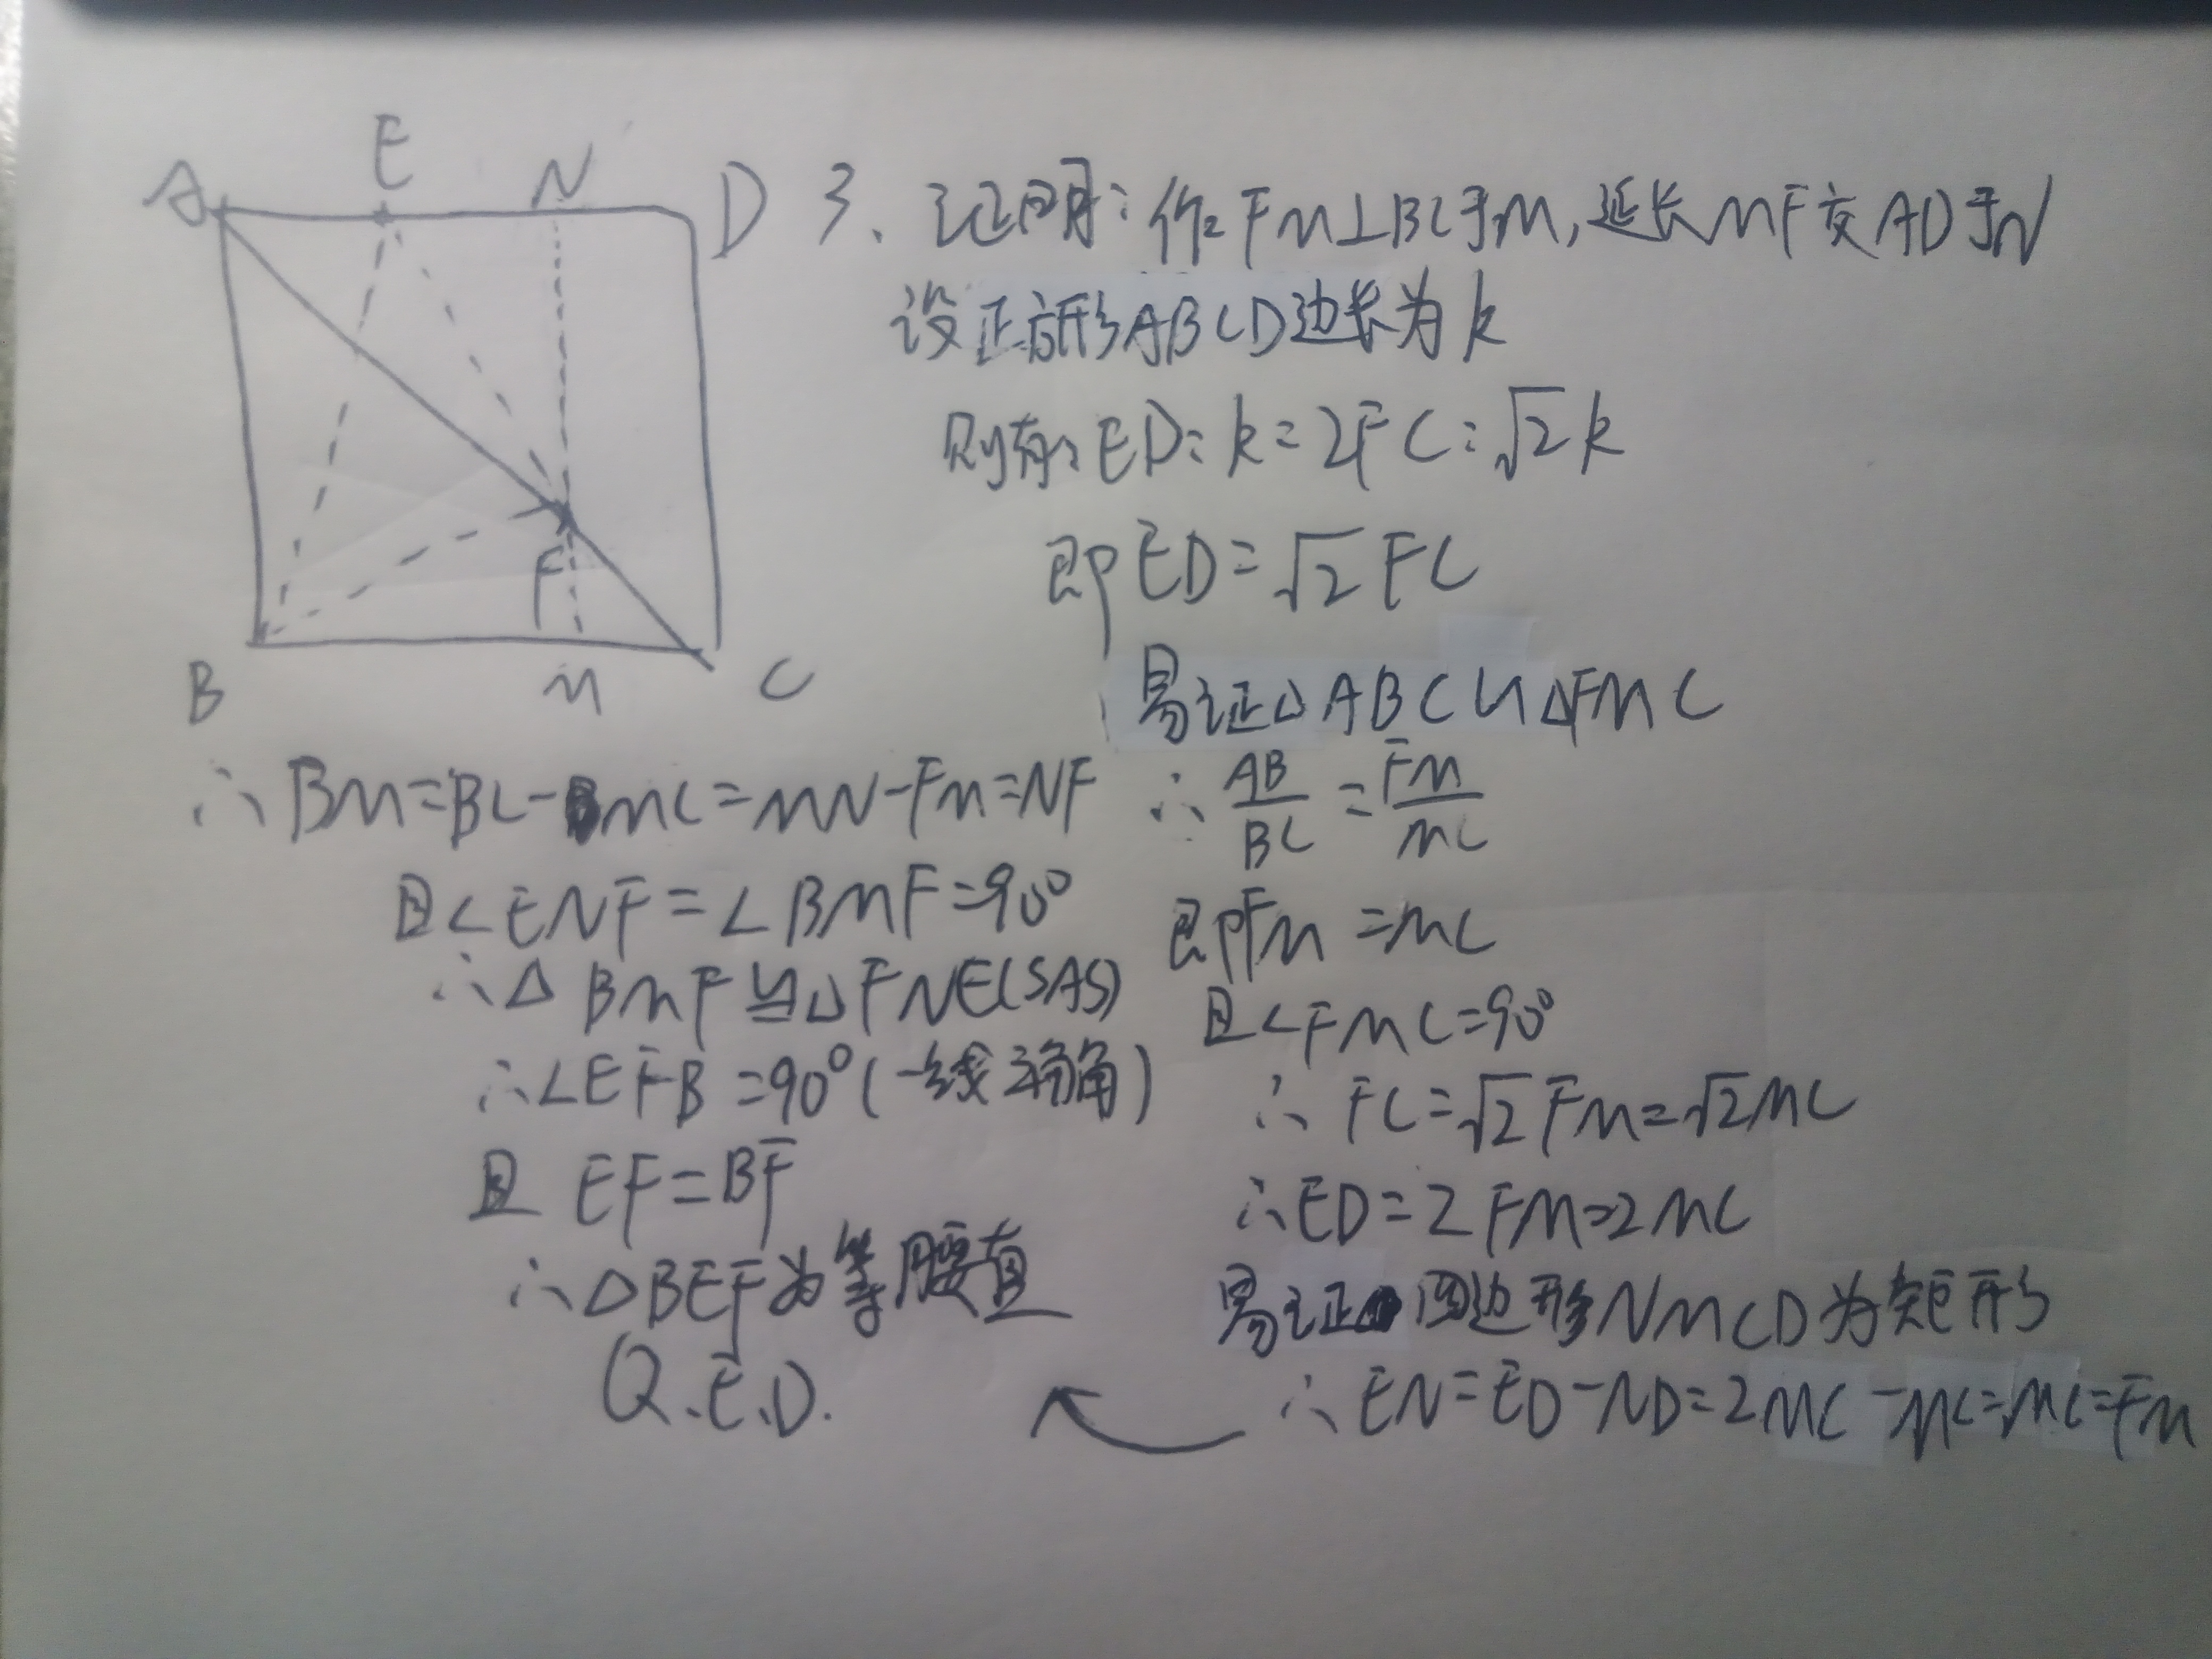 A E N D
F
B M C
3、证明:作FM⊥BC于M,延长MF交AD于N
设正方形ABCD边长为k
则有:ED:k=2FC:√2k
即ED=√2FC
易证△ABC∽△FMC
∴AB/BC=FM/MC
即FM=MC
且∠FMC=90°
∴FC=√2FM=√2MC
∴ED=2FM=2MC
易证四边形NMCD为矩形
∴EN=ED-ND=2MC-MC=MC=FM
∴BM=BC-MC=MN-FM=NF
且∠ENF=∠BMF=90°
∴△BMF≌△FNE(SAS)
∴∠EFB=90°(一线三等角)
且EF=BF
∴△BEF为等腰直
Q.E.D.